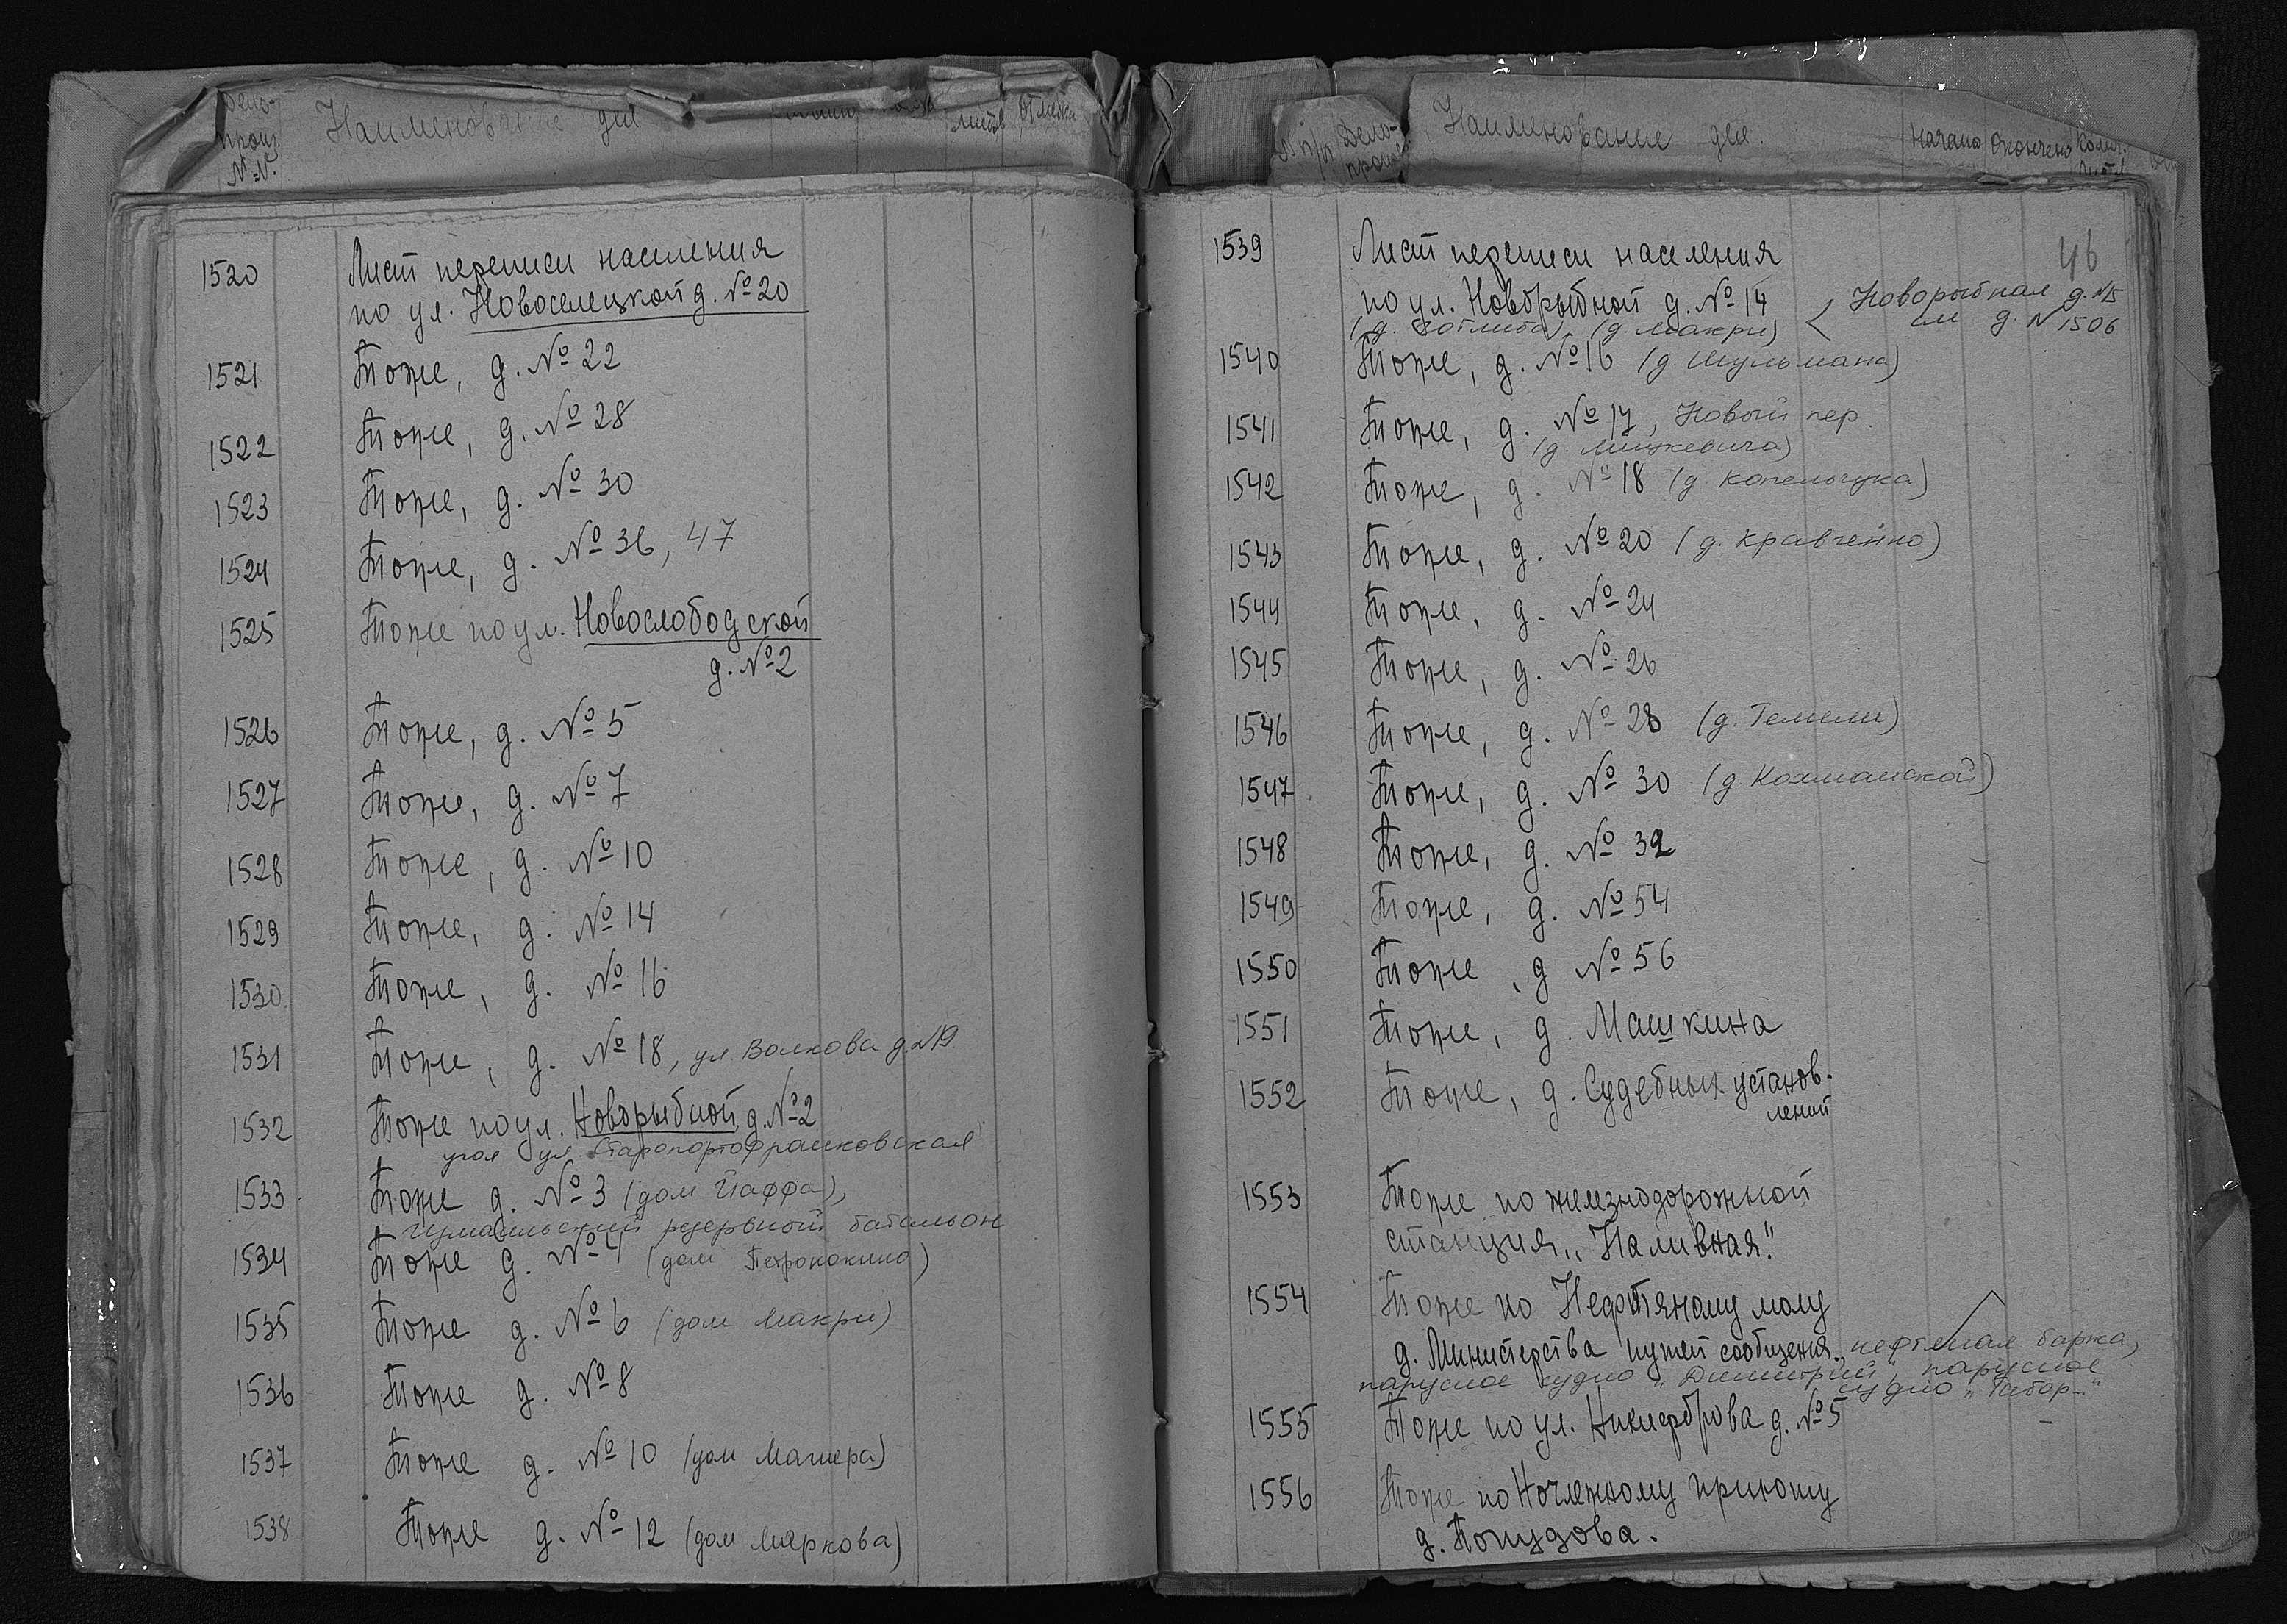 Наименование дел
листов
№.№.
1520 Лист переписи населения
по ул. Новоселецкой д. №20
1521 Тоже, д. №22
1522 Тоже, д. №28
1523 Тоже, д. №30
1524 Тоже, д. №36, 47
1525 Тоже по ул. Новослободской
д. №2
1526 Тоже, д. №5
1527 Тоже, д. №7
1528 Тоже, д. №10
1529 Тоже, д. №14
1530 Тоже, д. №16
1531 Тоже, д. №18, ул. Волкова д.
1532 Тоже по ул. Новорыбной д. №2
угол ул. Старопортофранковская
1533 Тоже д. №3 (дом Иаффа),
Измаильский резервный батальон
1534 Тоже д. №4 (дом Петрококино)
1535 Тоже д. №6 (дом Макри)
1536 Тоже д. №8
1537 Тоже д. №10 (дом Машера)
1538 Тоже д. №12 (дом Маркова)
Наименование дел.
Начало Окончено
46
1539 Лист переписи населения
по ул. Новорыбной д. №14 Новорыбная
(д. Готлиба), (д. Макри) см д. №1506
1540 Тоже, д. №16 (д Шульмана)
1541 Тоже, д. №17, Новый пер.
(д. Мицкевича)
1542 Тоже, д. №18 (д. Копельчука)
1543 Тоже, д. №20 (д. Кравченко)
1544 Тоже, д. №24
1545 Тоже, д. №26
1546 Тоже, д. №28 (д. Темели)
1547 Тоже, д. №30 (д. Кохманской)
1548 Тоже, д. №32
1549 Тоже, д. №54
1550 Тоже, д №56
1551 Тоже, д. Машкина
1552 Тоже, д. Судебных установ-
лений
1553 Тоже по железнодорожной
станция „Наливная."
1554 Тоже по Нефтяному молу
д. Министерства путей сообщения, нефтяная баржа,
парусное судно „Димитрий", парусное
судно
1555 Тоже по ул. Никифорова д. №5
1556 Тоже по Ночлежному приюту
д. Попудова.